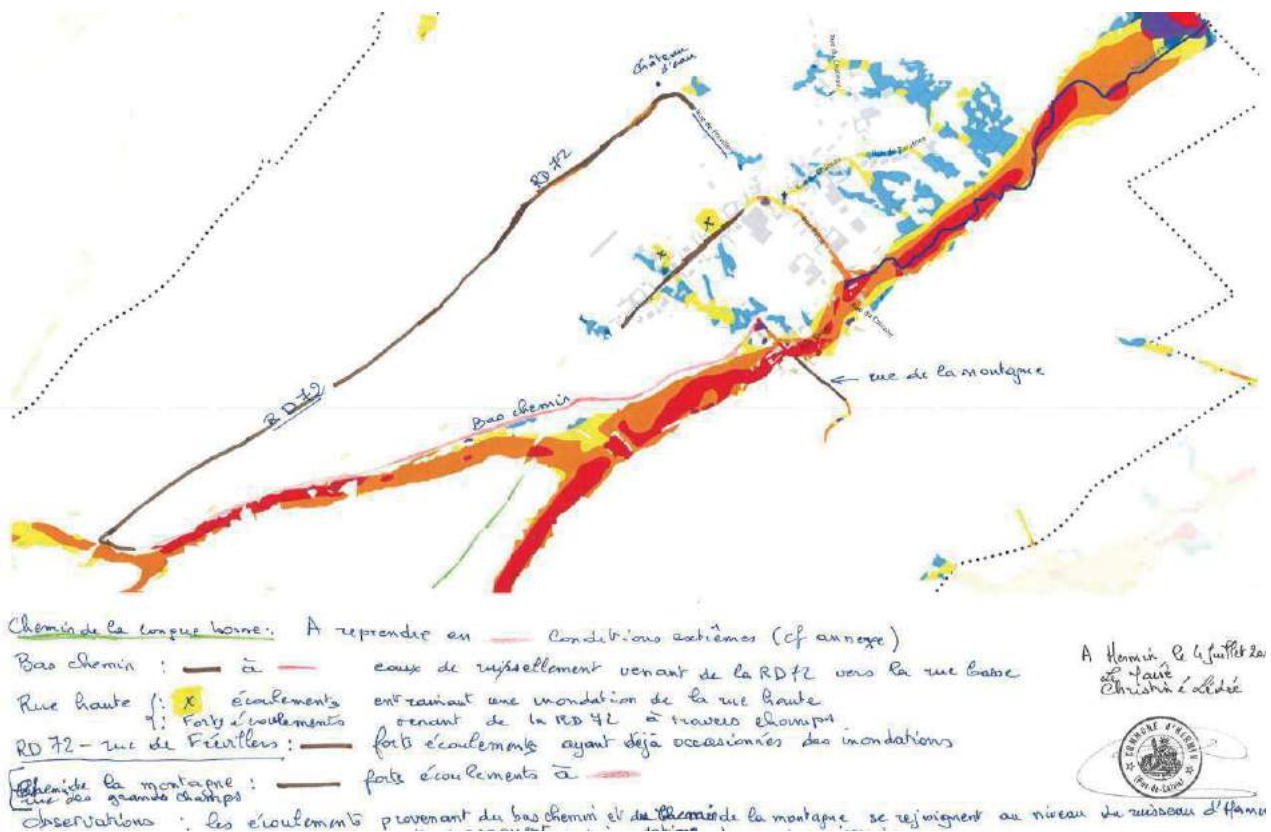 Château
d'eau
Rue de Frévillers
RD 72
RD 72
Bas chemin
← rue de la montagne
Chemin de la longue borne : A reprendre en conditions extrêmes (cf annexe)
Bas chemin : à eaux de ruissellement venant de la RD 72 vers la rue basse
Rue haute {: x écoulements entrainant une inondation de la rue haute
{: Forts écoulements venant de la RD 72 à travers champs
RD 72 - rue de Frévillers : forts écoulements ayant déjà occasionnés des inondations
Chemin de la montagne : forts écoulements à
rue des grands champs
Observations : les écoulements provenant du bas chemin et du Chemin de la montagne se rejoignent au niveau du ruisseau d'
A Hermin le 4 juillet
Le Maire
COMMUNE D'HERMIN
(Pas-de-Calais)